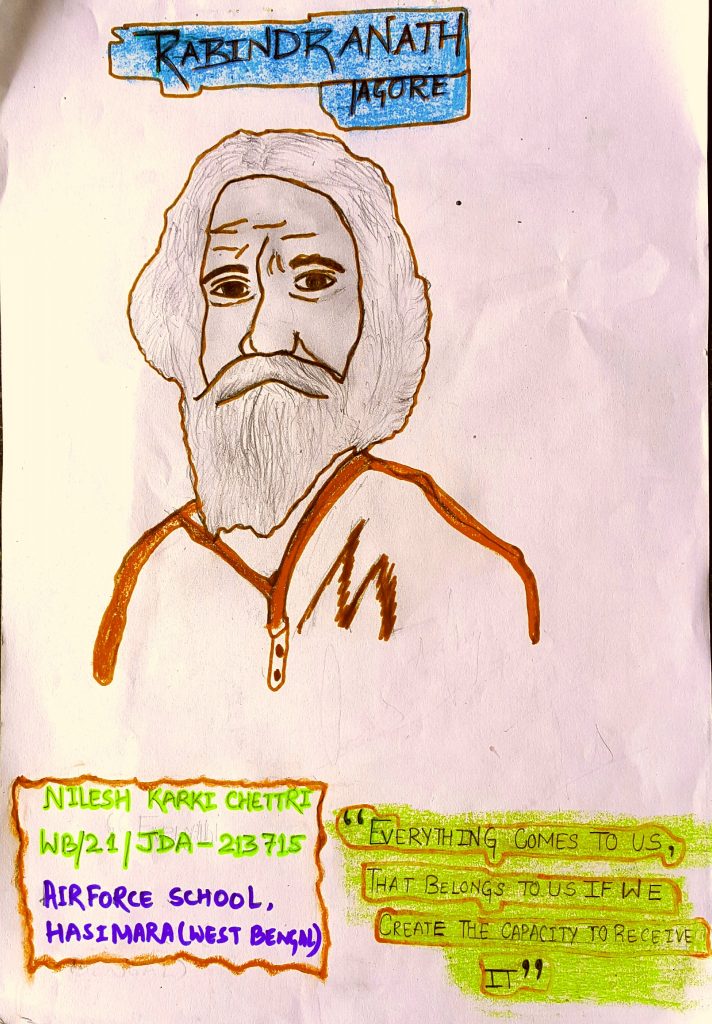 RABINDRANATH
TAGORE
NILESH KARKI CHETTRI
WB/21/JDA-213715
AIRFORCE SCHOOL,
HASIMARA(WEST BENGAL)
"EVERYTHING COMES TO US,
THAT BELONGS TO US IF WE
CREATE THE CAPACITY TO RECEIVE
IT"